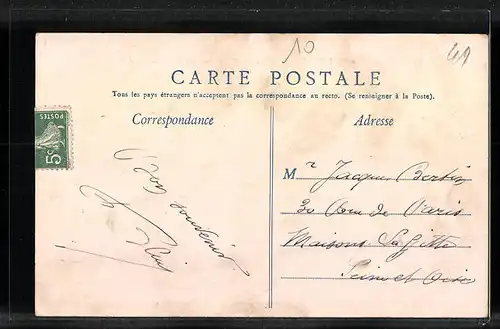 10
CARTE POSTALE
Tous les pays étrangers n'acceptent pas la correspondance au recto. (Se renseigner à la Poste).
Correspondance
Adresse
POSTES
5c
souvenir
Mr Jacques Bertin
30 de Paris
Maisons-Laffitte
Seine et Oise